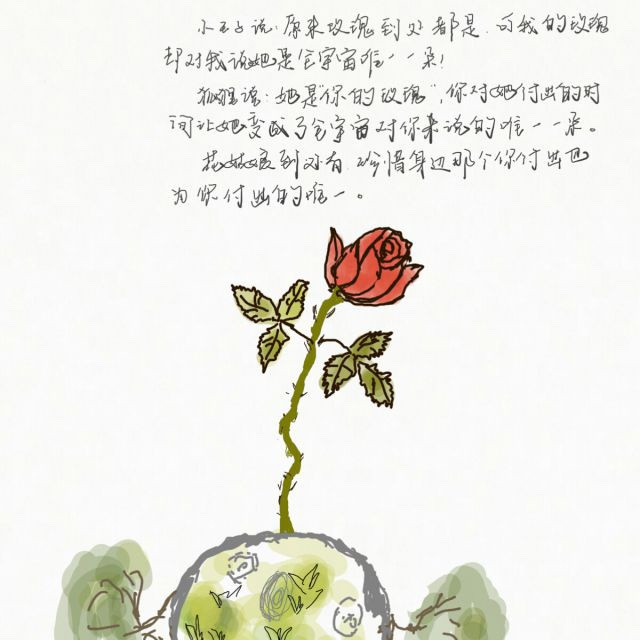 小王子说:原来玫瑰到处都是.可我的玫瑰
却对我说她是全宇宙唯一一朵!
狐狸说:她是你的玫瑰",你对她付出的时
间让她变成了全宇宙对你来说的唯一一朵。
到处有.珍惜身边那个你付出也
为你付出的唯一。